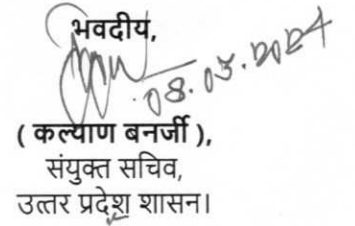 भवदीय,
08.03.2024
( कल्याण बनर्जी ),
संयुक्त सचिव,
उत्तर प्रदेश शासन।